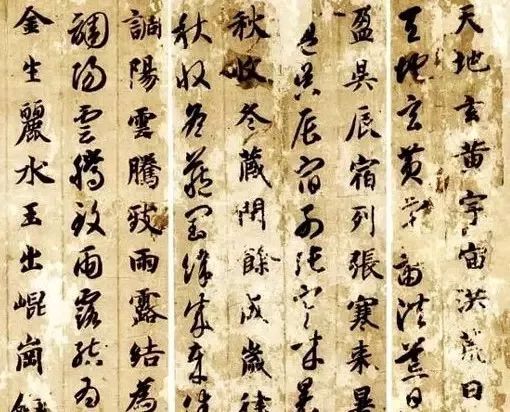 天地玄黃宇宙洪荒日
天地玄黃宇宙洪荒日
盈昃辰宿列張寒来暑
盈昃辰宿列張寒来暑
秋收冬藏閏餘成歲律
秋收冬藏閏餘成歲律
調陽雲騰致雨露結為
調陽雲騰致雨露結為
金生麗水玉出崐崗